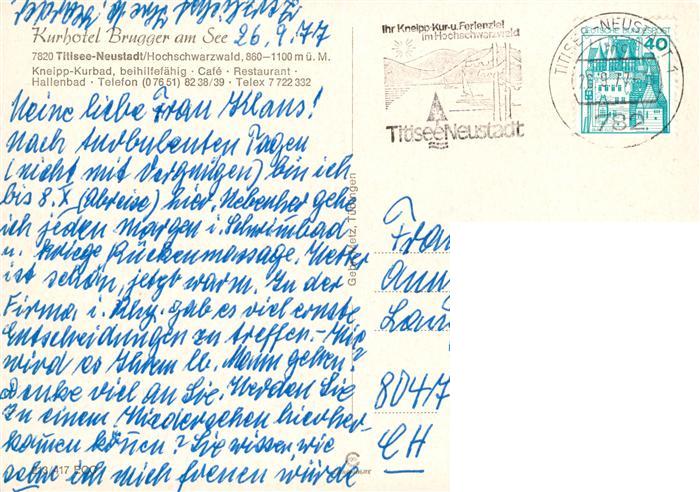 Kurhotel Brugger am See 26.9.77
7820 Titisee-Neustadt/Hochschwarzwald, 860–1100 m ü. M.
Kneipp-Kurbad, beihilfefähig · Café · Restaurant ·
Hallenbad · Telefon (07651) 8238/39 · Telex 7 722 332
Meine liebe Frau Klaus!
Nach turbulenten Tagen
(nicht mit Vergnügen) bin ich
bis 8.X (Abreise) hier. Nebenher gehe
ich jeden Morgen i. Schwimbad
u. kriege Rückenmassage. Wetter
ist schön, jetzt warm. In der
Firma i. gab es viel ernste
Entscheidungen zu treffen. – Wie
wird es Ihrem lb. Mann gehen?
Denke viel an Sie. Werden Sie
zu einem Wiedersehen hierher-
kommen können? Sie wissen, wie
sehr ich mich freuen würde
Gebr. Metz, Tübingen
Ihr Kneipp-Kur-u. Ferienziel
im Hochschwarzwald
Titisee Neustadt
TITISEE-NEUSTADT 1
26.9.77
782
DEUTSCHE BUNDESPOST
40
Frau
Lau
8047
CH